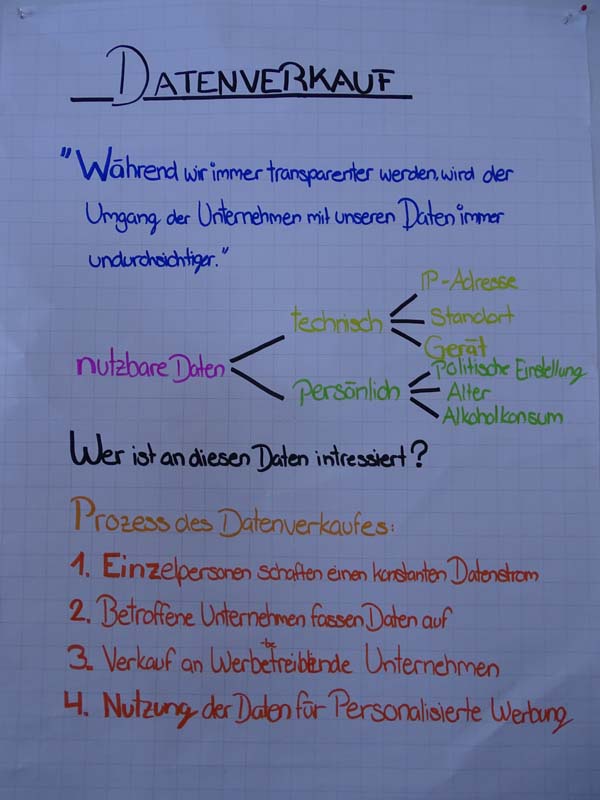 DATENVERKAUF
"Während wir immer transparenter werden, wird der
Umgang der Unternehmen mit unseren Daten immer
undurchsichtiger."
nutzbare Daten
technisch
IP-Adresse
Standort
Gerät
persönlich
Politische Einstellung
Alter
Alkoholkonsum
Wer ist an diesen Daten intressiert?
Prozess des Datenverkaufes:
1. Einzelpersonen schaffen einen konstanten Datenstrom
2. Betroffene Unternehmen fassen Daten auf
3. Verkauf an Werbetreibende Unternehmen
4. Nutzung der Daten für Personalisierte Werbung